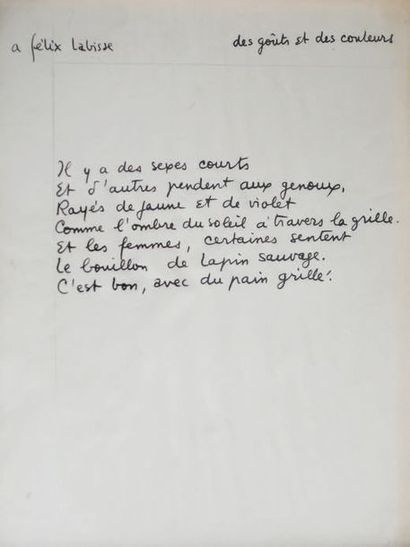 a félix Labisse
des goûts et des couleurs
Il y a des sexes courts
Et d'autres pendent aux genoux,
Rayés de jaune et de violet
Comme l'ombre du soleil à travers la grille.
Et les femmes, certaines sentent
Le bouillon de lapin sauvage.
C'est bon, avec du pain grillé.